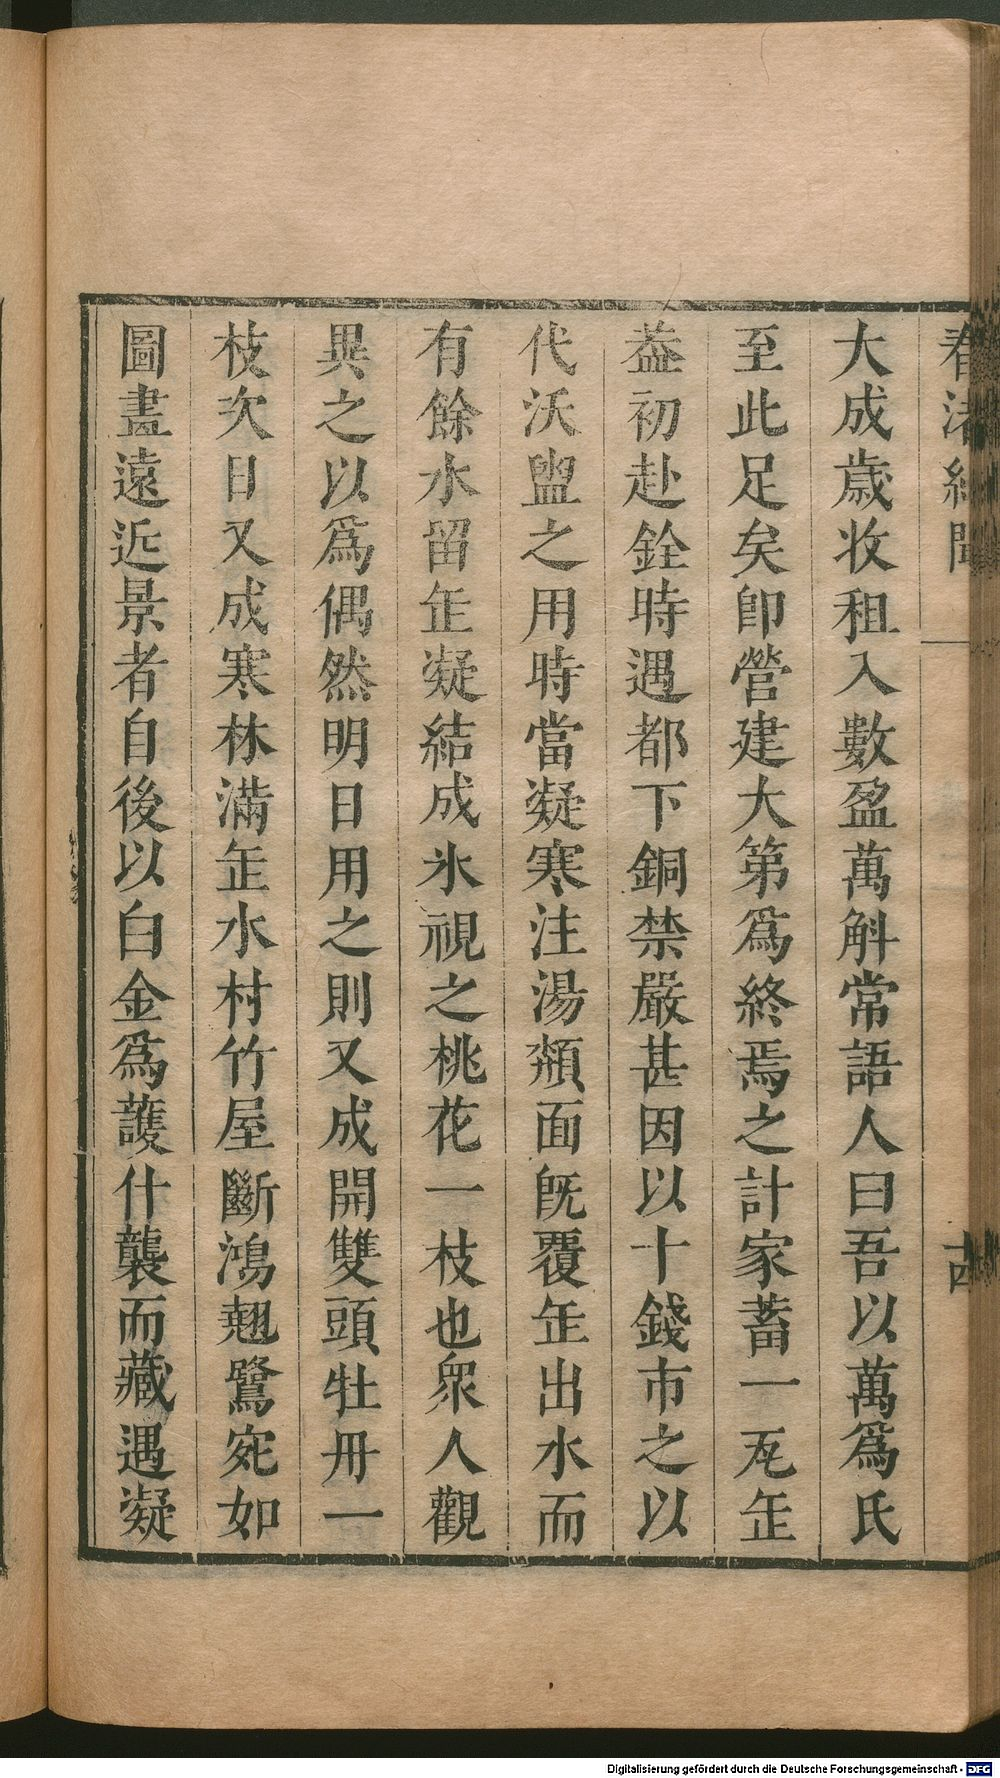 春渚紀聞
大成歲收租入數盈萬斛常語人曰吾以萬爲氏
至此足矣卽營建大第爲終焉之計家蓄一瓦缶
葢初赴銓時遇都下銅禁嚴甚因以十錢市之以
代沃盥之用時當凝寒注湯頮面旣覆缶出水而
有餘水留缶凝結成氷視之桃花一枝也衆人觀
異之以爲偶然明日用之則又成開雙頭牡丹一
枝次日又成寒林滿缶水村竹屋斷鴻翹鷺宛如
圖畫遠近景者自後以白金爲護什襲而藏遇凝
Digitalisierung gefördert durch die Deutsche Forschungsgemeinschaft - DFG